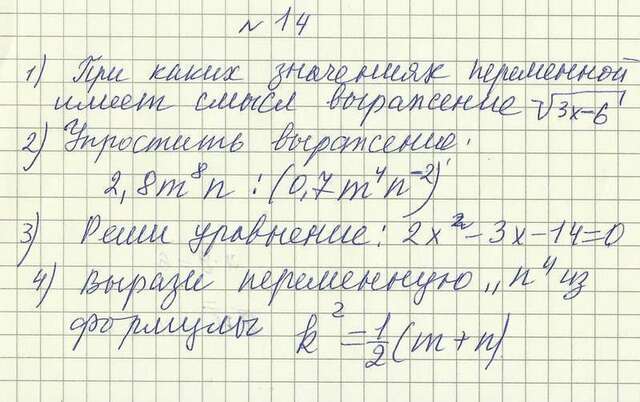 № 14
1) При каких значениях переменной
имеет смысл выражение √3x-6
2) Упростить выражение:
2,8m⁸n : (0,7m⁴n⁻²)
3) Реши уравнение: 2x²-3x-14=0
4) Вырази переменную „n“ из
формулы k²=1/2(m+n)